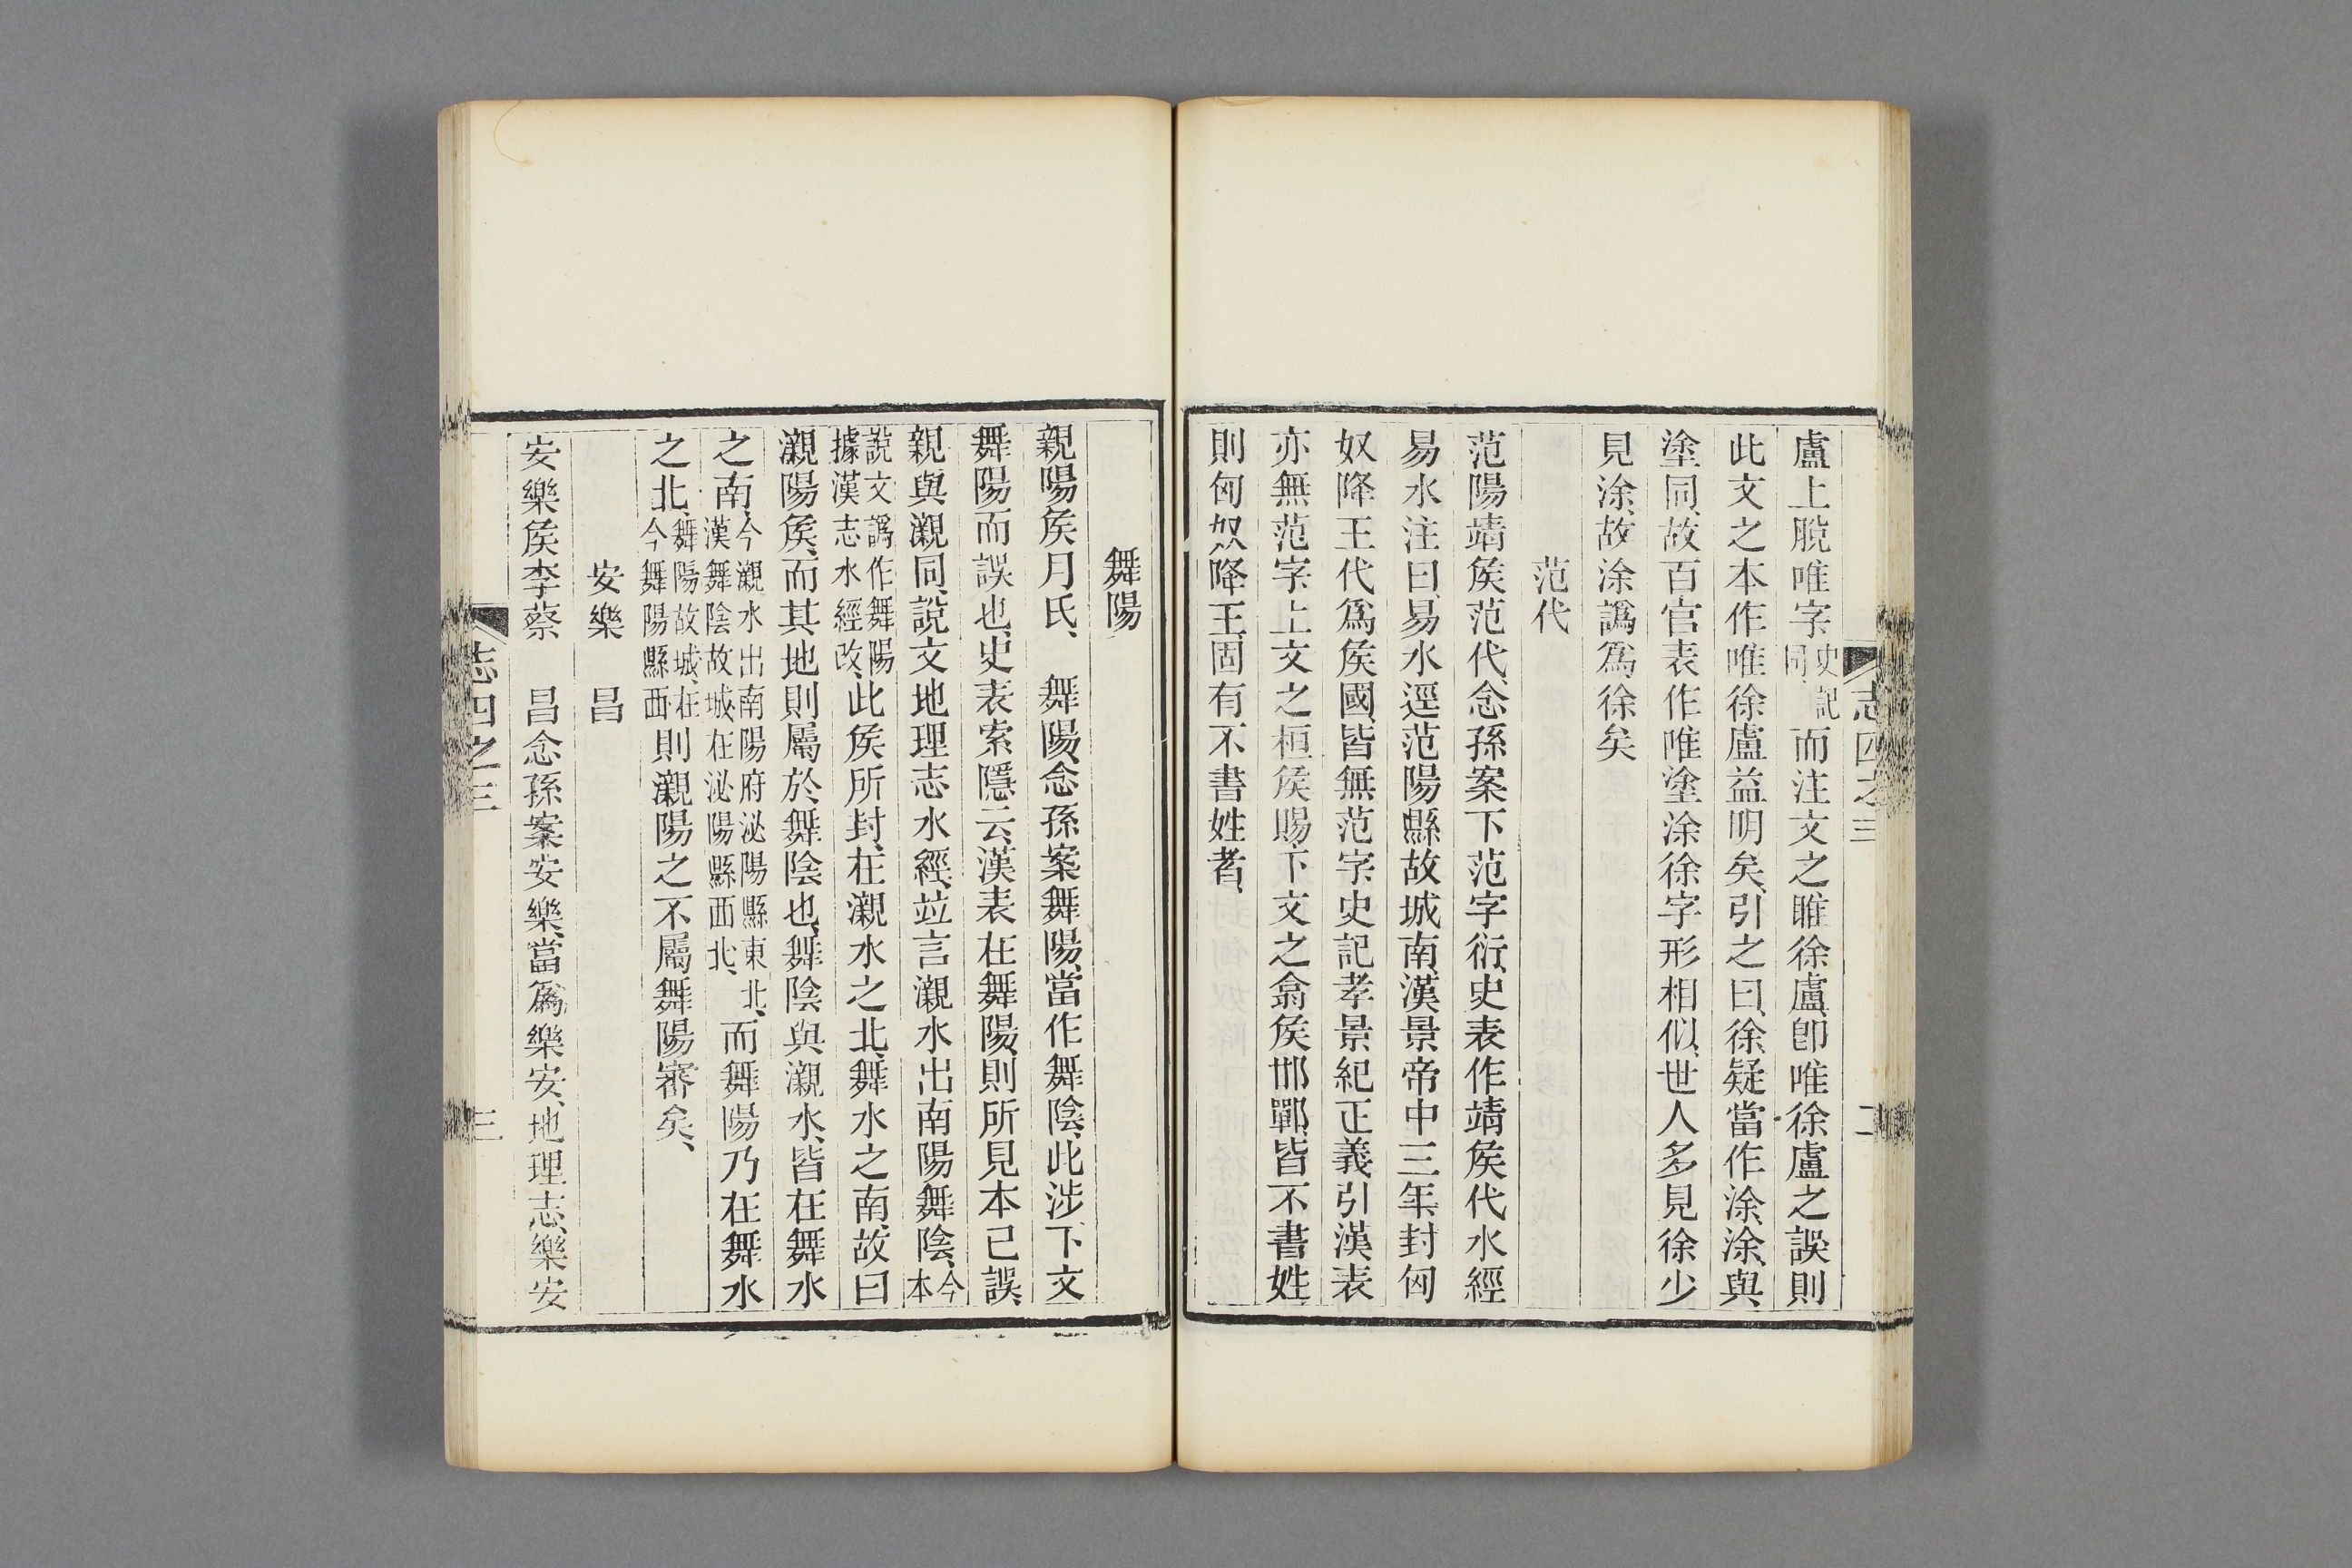 志四之三
二
盧上脫唯字史記同而注文之睢徐盧卽唯徐盧之誤則
此文之本作唯徐盧益明矣引之曰徐疑當作涂涂與
塗同故百官表作唯塗涂徐字形相似世人多見徐少
見涂故涂譌爲徐矣
范代
范陽靖矦范代念孫案下范字衍史表作靖矦代水經
易水注曰易水逕范陽縣故城南漢景帝中三年封匈
奴降王代爲矦國皆無范字史記孝景紀正義引漢表
亦無范字上文之桓矦賜下文之翕矦邯鄲皆不書姓
則匈奴降王固有不書姓者
舞陽
親陽矦月氏 舞陽念孫案舞陽當作舞陰此涉下文
舞陽而誤也史表索隱云漢表在舞陽則所見本已誤
親與灈同說文地理志水經竝言瀙水出南陽舞陰今本
說文譌作舞陽據漢志水經改此矦所封在瀙水之北舞水之南故曰
瀙陽矦而其地則屬於舞陰也舞陰與瀙水皆在舞水
之南今瀙水出南陽府泌陽縣東北漢舞陰故城在泌陽縣西北而舞陽乃在舞水
之北舞陽故城在今舞陽縣西則瀙陽之不屬舞陽審矣
安樂 昌
安樂矦李蔡 昌念孫案安樂當爲樂安地理志樂安
志四之三
三